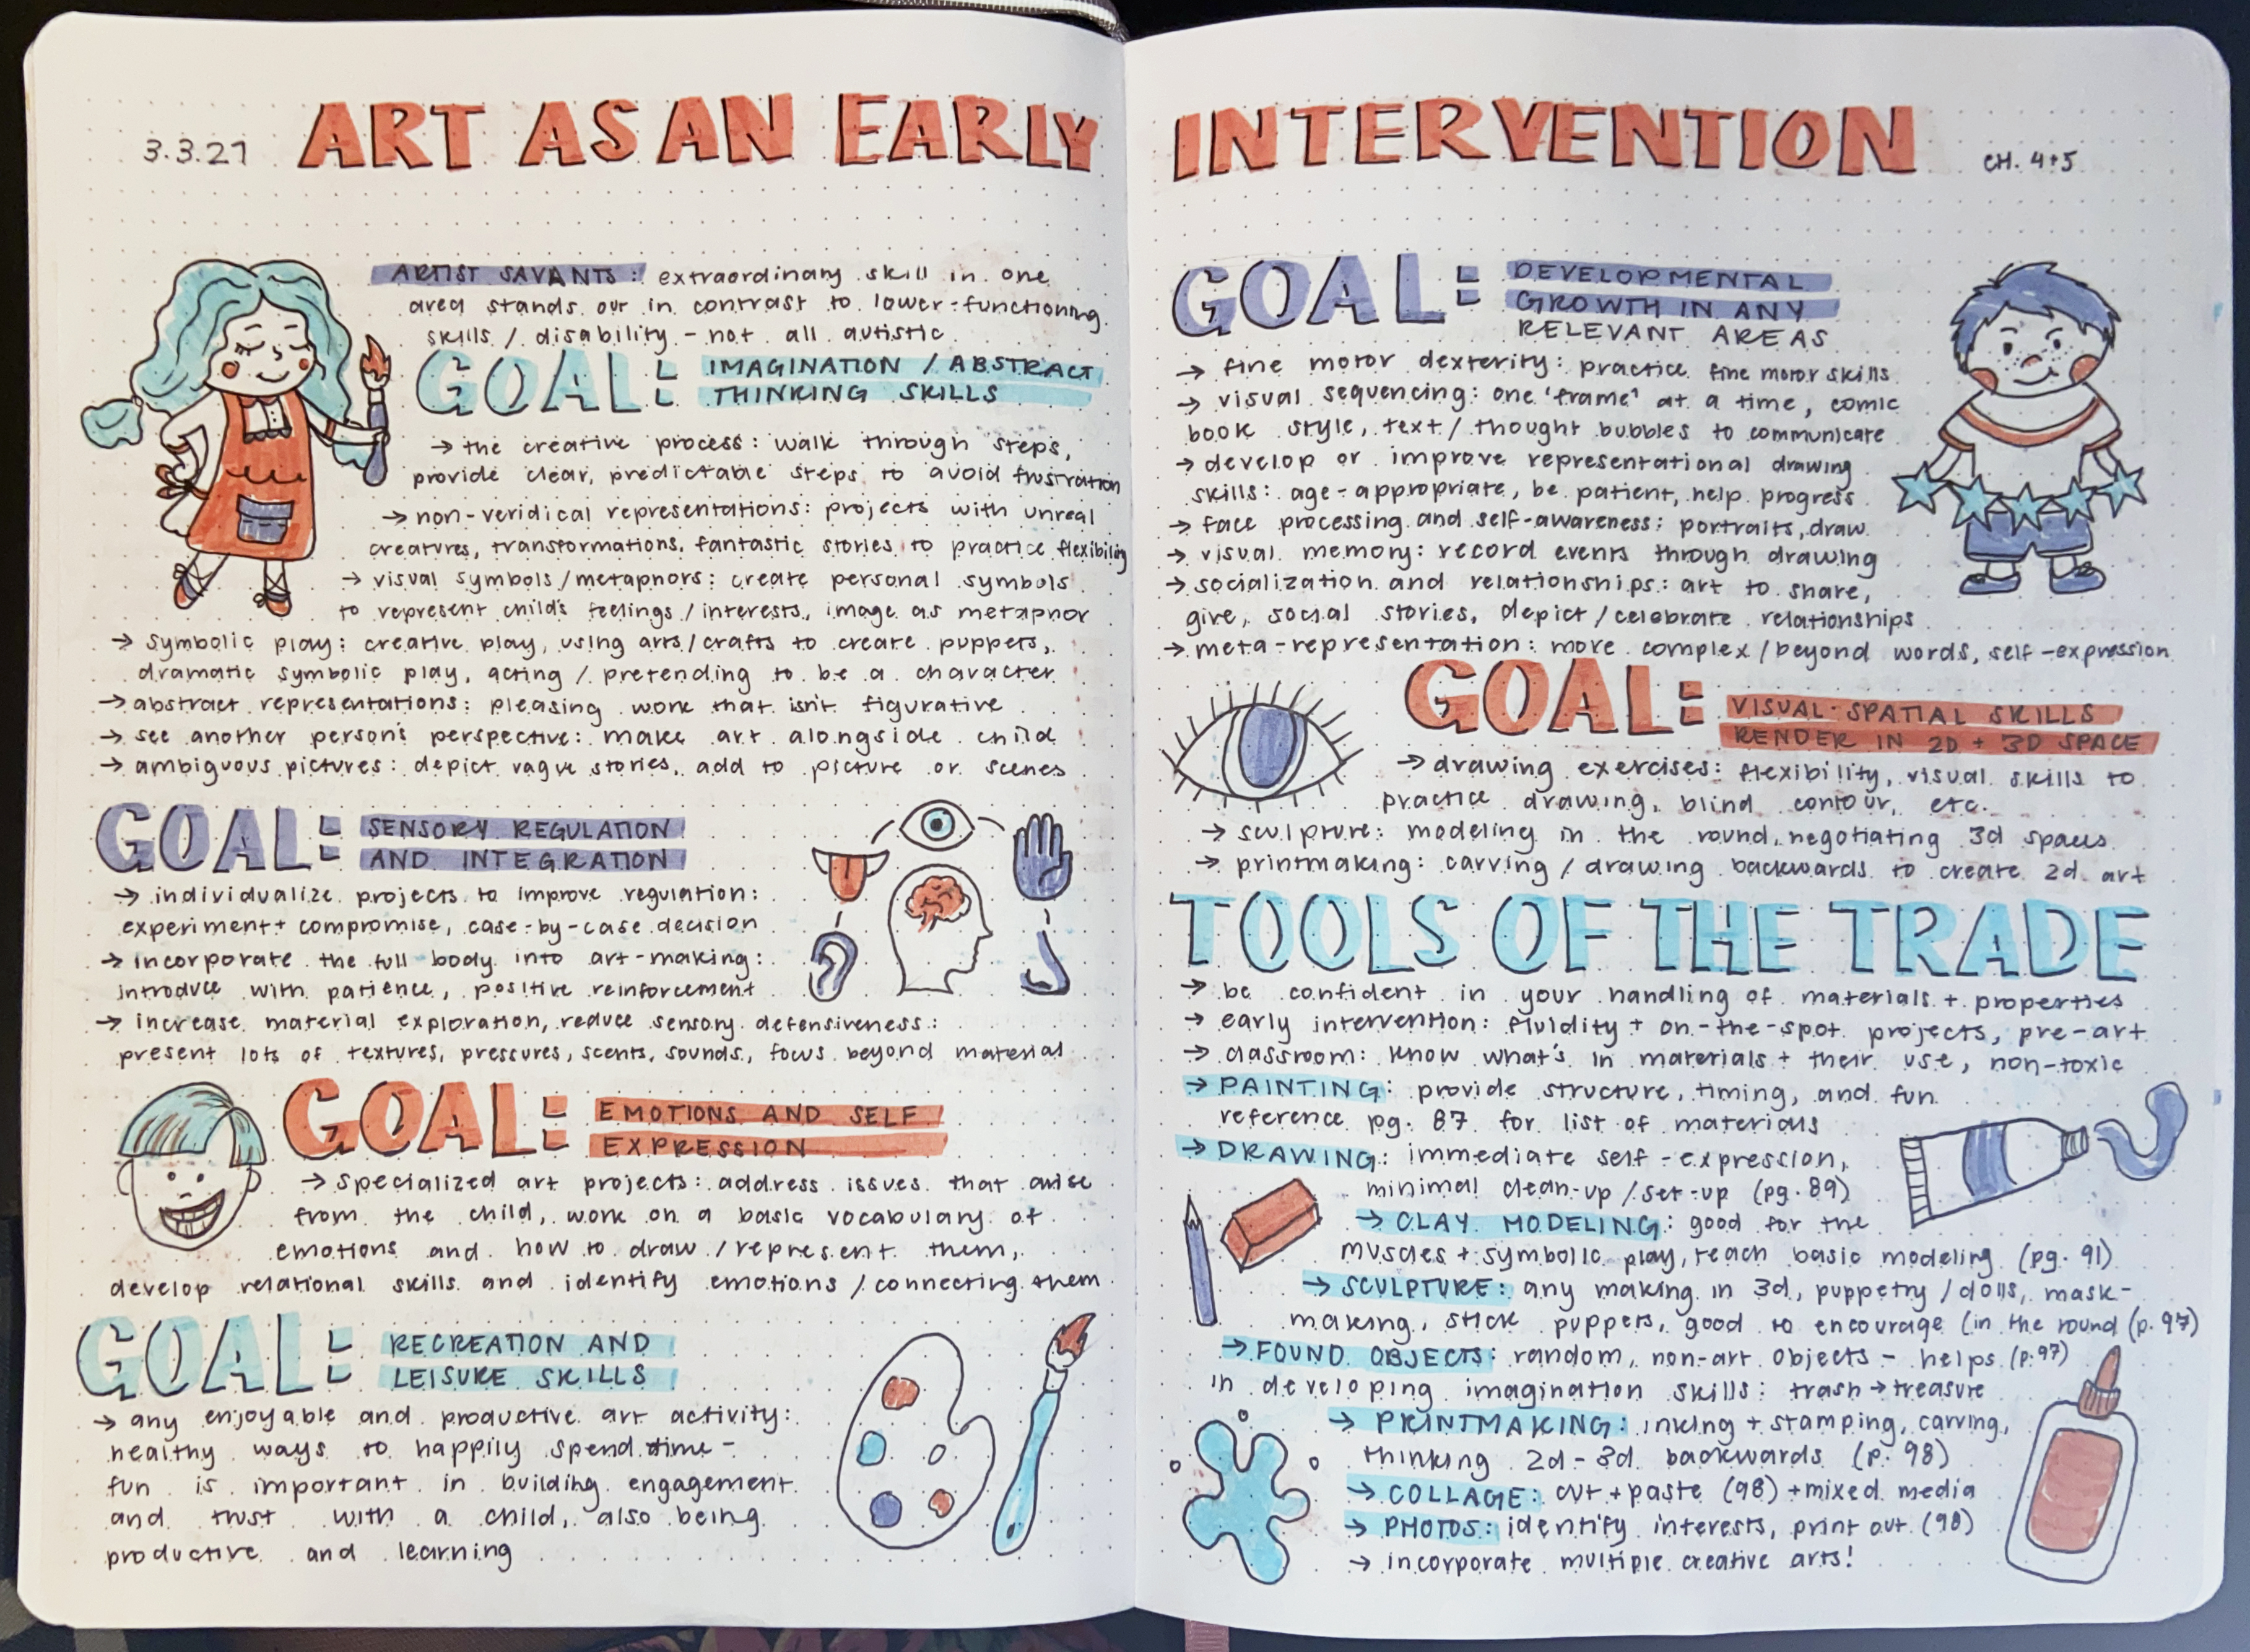 3.3.21 ART AS AN EARLY INTERVENTION CH. 4+5
ARTIST SAVANTS: extraordinary skill in one
area stands out in contrast to lower-functioning
skills / disability - not all autistic
GOAL: IMAGINATION / ABSTRACT
THINKING SKILLS
→ the creative process: walk through steps,
provide clear, predictable steps to avoid frustration
→ non-veridical representations: projects with unreal
creatures, transformations, fantastic stories to practice flexibility
→ visual symbols/metaphors: create personal symbols
to represent child's feelings / interests, image as metaphor
→ symbolic play: creative play, using arts/crafts to create puppets,
dramatic symbolic play, acting / pretending to be a character
→ abstract representations: pleasing work that isn't figurative
→ see another person's perspective: make art alongside child
→ ambiguous pictures: depict vague stories, add to picture or scenes
GOAL: SENSORY REGULATION
AND INTEGRATION
→ individualize projects to improve regulation:
experiment + compromise, case-by-case decision
→ incorporate the full body into art-making:
introduce with patience, positive reinforcement
→ increase material exploration, reduce sensory defensiveness:
present lots of textures, pressures, scents, sounds, focus beyond material
GOAL: EMOTIONS AND SELF
EXPRESSION
→ specialized art projects: address issues that arise
from the child, work on a basic vocabulary of
emotions and how to draw / represent them,
develop relational skills and identify emotions / connecting them
GOAL: RECREATION AND
LEISURE SKILLS
→ any enjoyable and productive art activity:
healthy ways to happily spend time -
fun is important in building engagement
and trust with a child, also being
productive and learning
GOAL: DEVELOPMENTAL
GROWTH IN ANY
RELEVANT AREAS
→ fine motor dexterity: practice fine motor skills
→ visual sequencing: one 'frame' at a time, comic
book style, text / thought bubbles to communicate
→ develop or improve representational drawing
skills: age-appropriate, be patient, help progress
→ face processing and self-awareness: portraits, draw
→ visual memory: record events through drawing
→ socialization and relationships: art to share,
give, social stories, depict / celebrate relationships
→ meta-representation: more complex / beyond words, self-expression
GOAL: VISUAL-SPATIAL SKILLS
RENDER IN 2D + 3D SPACE
→ drawing exercises: flexibility, visual skills to
practice drawing, blind contour, etc.
→ sculpture: modeling in the round, negotiating 3d spaces
→ printmaking: carving / drawing backwards to create 2d art
TOOLS OF THE TRADE
→ be confident in your handling of materials + properties
→ early intervention: fluidity + on-the-spot projects, pre-art
→ classroom: know what's in materials + their use, non-toxic
→ PAINTING: provide structure, timing, and fun
reference pg. 87 for list of materials
→ DRAWING: immediate self-expression,
minimal clean-up / set-up (pg. 89)
→ CLAY MODELING: good for the
muscles + symbolic play, teach basic modeling (pg. 91)
→ SCULPTURE: any making in 3d, puppetry / dolls, mask-
making, stick puppets, good to encourage (in the round (p. 97)
→ FOUND OBJECTS: random, non-art objects - helps (p. 97)
in developing imagination skills: trash → treasure
→ PRINTMAKING: inking + stamping, carving,
thinking 2d - 3d backwards (p. 98)
→ COLLAGE: cut + paste (98) + mixed media
→ PHOTOS: identify interests, print out (98)
→ incorporate multiple creative arts!